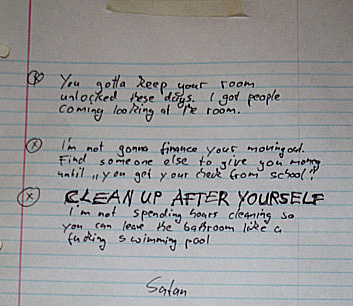 ⓧ You gotta keep your room
unlocked these days. I got people
coming looking at the room.
ⓧ I'm not gonna finance your moving out.
Find someone else to give you money
until "you get your check from school"!
ⓧ CLEAN UP AFTER YOURSELF
I'm not spending hours cleaning so
you can leave the bathroom like a
fucking swimming pool
Satan